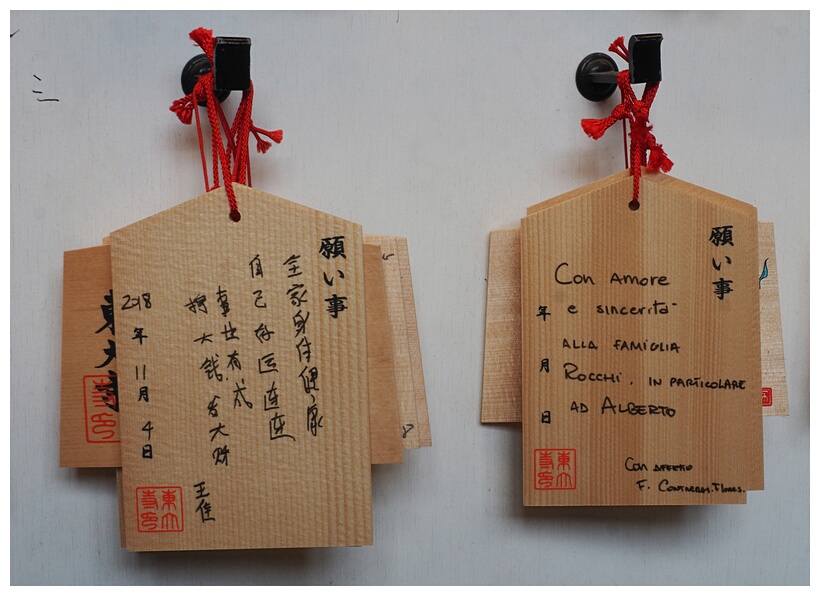 願い事
全家身体健康
自己好运连连
事业有成
挣大钱 发大财
王佳
2018年11月4日
東大寺
願い事
Con Amore
e sincerità
ALLA FAMIGLIA
ROCCHI, IN PARTICOLARE
AD ALBERTO
Con affetto
年 月 日
東大
東大